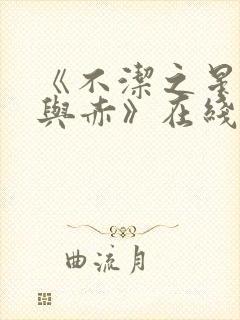 《不潔之星
與赤》在綫
曲流月